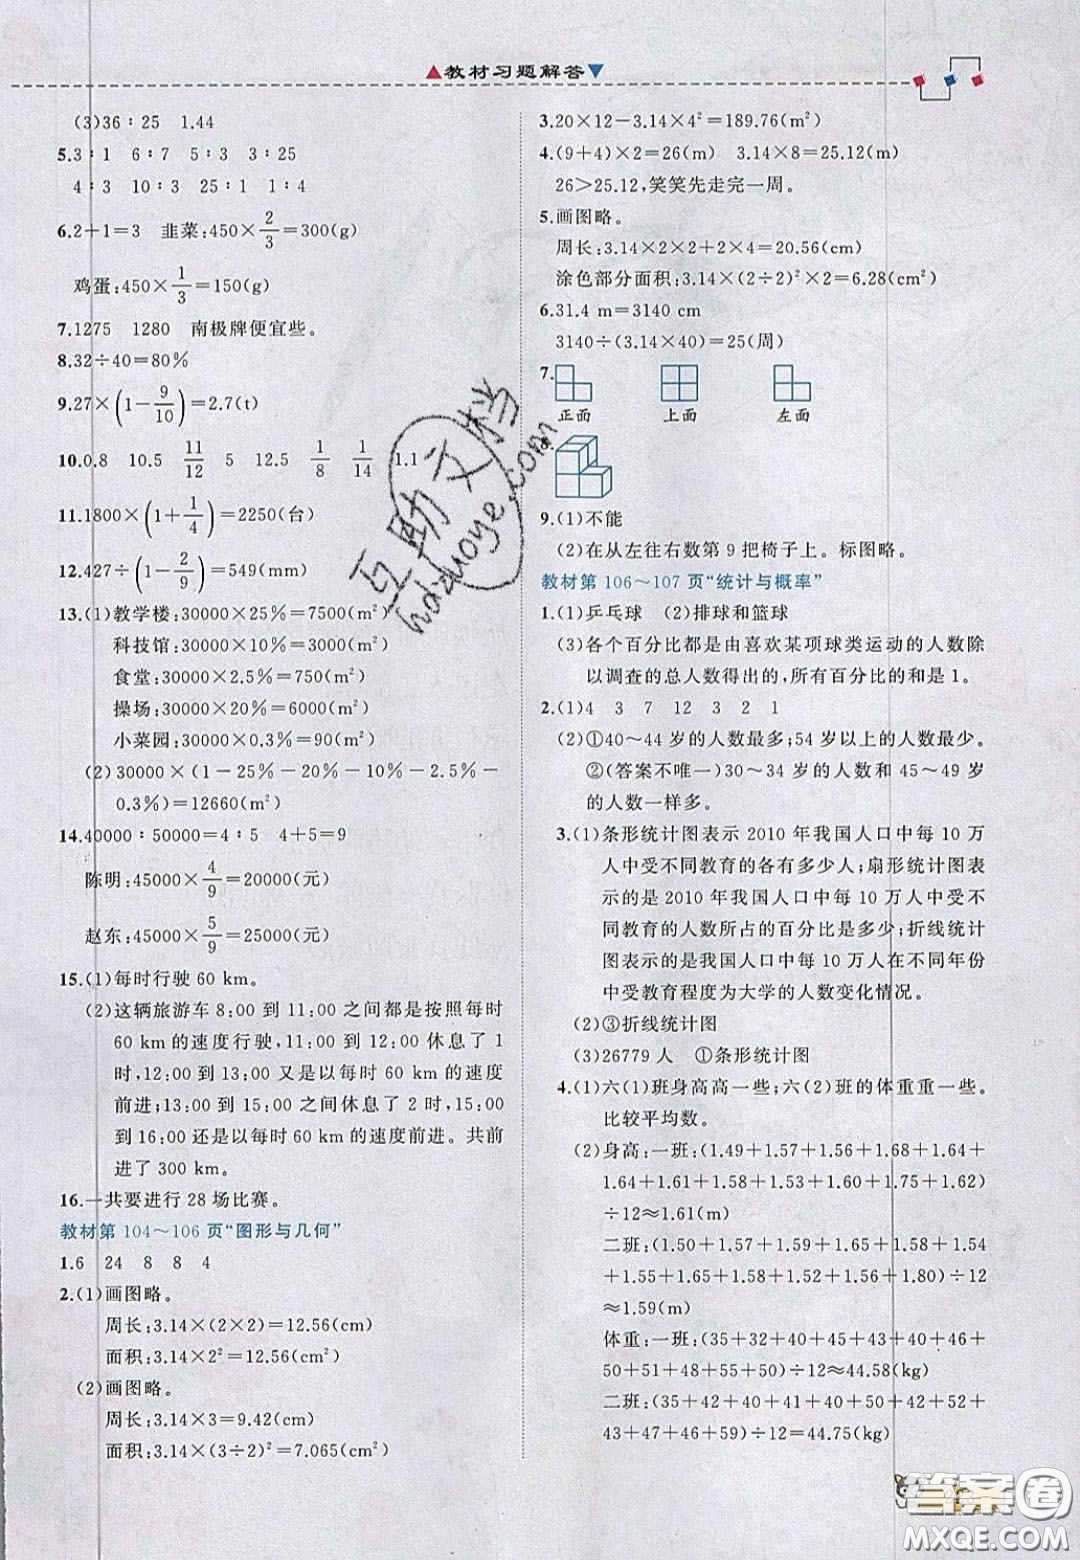 教材习题解答
(3)36∶25 1.44
5.3∶1 6∶7 5∶3 3∶25
4∶3 10∶3 25∶1 1∶4
6.2+1=3 韭菜:450×2/3=300(g)
鸡蛋:450×1/3=150(g)
7.1275 1280 南极牌便宜些。
8.32÷40=80%
9.27×(1-9/10)=2.7(t)
10.0.8 10.5 11/12 5 12.5 1/8 1/14 1.1
11.1800×(1+1/4)=2250(台)
12.427÷(1-2/9)=549(mm)
13.(1)教学楼:30000×25%=7500(m²)
科技馆:30000×10%=3000(m²)
食堂:30000×2.5%=750(m²)
操场:30000×20%=6000(m²)
小菜园:30000×0.3%=90(m²)
(2)30000×(1-25%-20%-10%-2.5%-
0.3%)=12660(m²)
14.40000∶50000=4∶5 4+5=9
陈明:45000×4/9=20000(元)
赵东:45000×5/9=25000(元)
15.(1)每时行驶 60 km。
(2)这辆旅游车 8:00 到 11:00 之间都是按照每时
60 km 的速度行驶,11:00 到 12:00 休息了 1
时,12:00 到 13:00 又是以每时 60 km 的速度
前进;13:00 到 15:00 之间休息了 2 时,15:00
到 16:00 还是以每时 60 km 的速度前进。共前
进了 300 km。
16.一共要进行 28 场比赛。
教材第 104～106 页“图形与几何”
1.6 24 8 8 4
2.(1)画图略。
周长:3.14×(2×2)=12.56(cm)
面积:3.14×2²=12.56(cm²)
(2)画图略。
周长:3.14×3=9.42(cm)
面积:3.14×(3÷2)²=7.065(cm²)
3.20×12-3.14×4²=189.76(m²)
4.(9+4)×2=26(m) 3.14×8=25.12(m)
26>25.12,笑笑先走完一周。
5.画图略。
周长:3.14×2×2+2×4=20.56(cm)
涂色部分面积:3.14×(2÷2)²×2=6.28(cm²)
6.31.4 m=3140 cm
3140÷(3.14×40)=25(周)
7.
正面 上面 左面
8.
9.(1)不能
(2)在从左往右数第 9 把椅子上。标图略。
教材第 106～107 页“统计与概率”
1.(1)乒乓球 (2)排球和篮球
(3)各个百分比都是由喜欢某项球类运动的人数除
以调查的总人数得出的,所有百分比的和是 1。
2.(1)4 3 7 12 3 2 1
(2)①40～44 岁的人数最多;54 岁以上的人数最少。
②(答案不唯一)30～34 岁的人数和 45～49 岁
的人数一样多。
3.(1)条形统计图表示 2010 年我国人口中每 10 万
人中受不同教育的各有多少人;扇形统计图表
示的是 2010 年我国人口中每 10 万人中受不
同教育的人数所占的百分比是多少;折线统计
图表示的是我国人口中每 10 万人在不同年份
中受教育程度为大学的人数变化情况。
(2)③折线统计图
(3)26779 人 ①条形统计图
4.(1)六(1)班身高高一些;六(2)班的体重重一些。
比较平均数。
(2)身高:一班:(1.49+1.57+1.56+1.68+1.64+
1.64+1.61+1.58+1.62+1.65+1.64+1.62)
÷12≈1.61(m)
二班:(1.50+1.57+1.57+1.65+1.58+1.54
+1.55+1.55+1.65+1.65+1.62+1.60)÷12
≈1.59(m)
体重:一班:(35+32+40+45+43+40+46+
50+51+48+55+50)÷12≈44.58(kg)
二班:(35+42+40+41+42+52+44+50+
43+47+46+55)÷12=44.75(kg)
互助文档
hdzuoye.com
答案圈
MXQE.COM